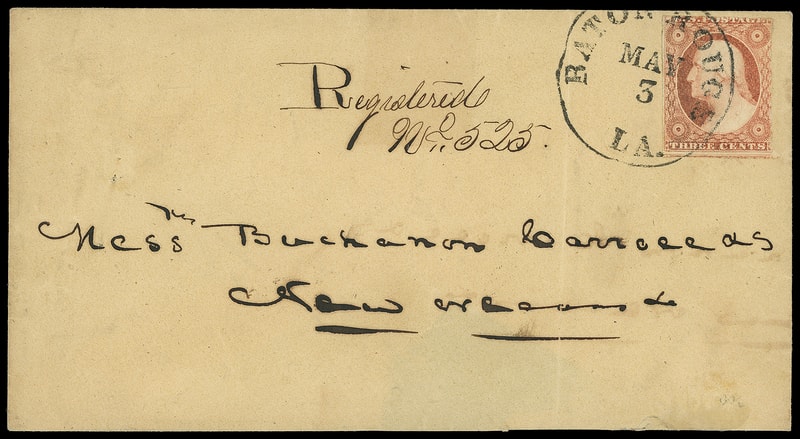 U.S. POSTAGE
BATON ROUGE
MAY
3
LA.
THREE CENTS
Registered
No. 525.
Messrs Buchanon Carroll & Co
New Orleans La